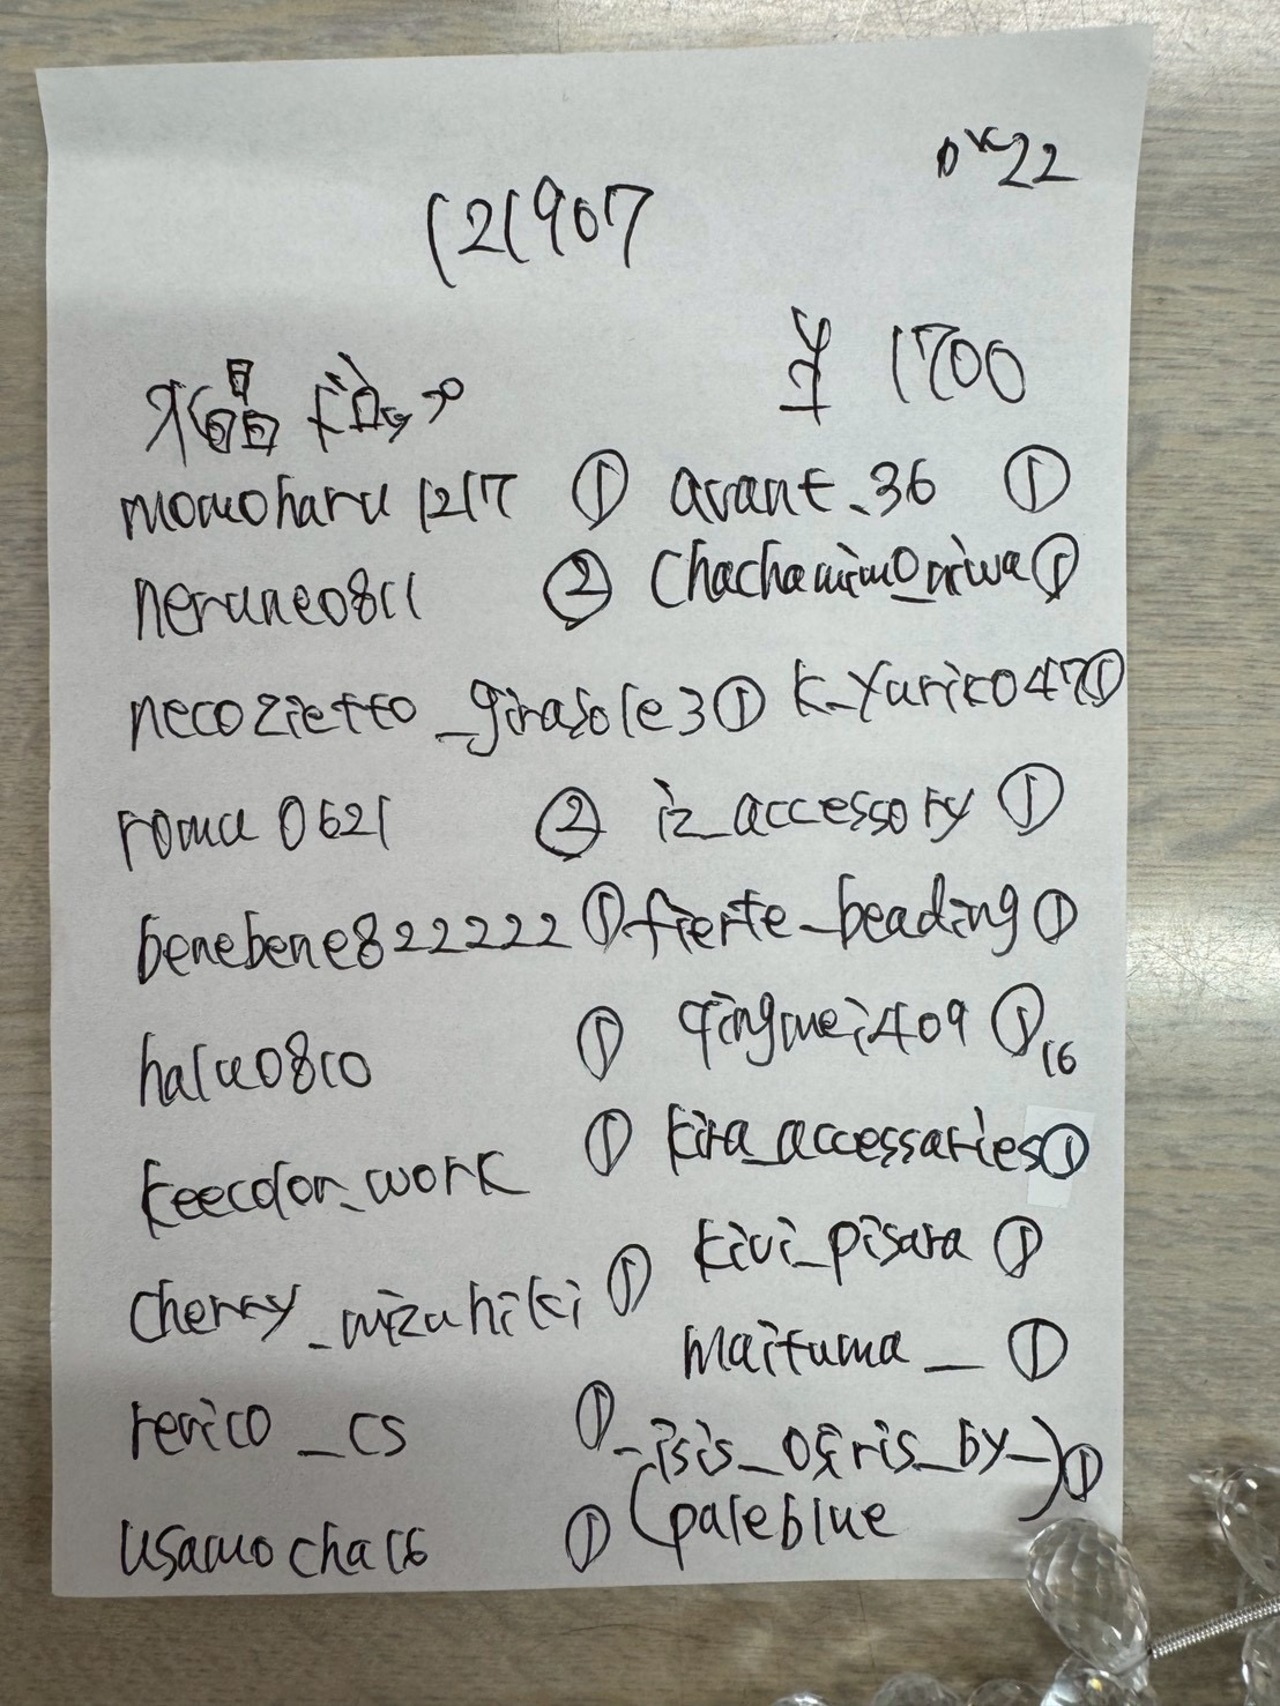 OK22
121907
水晶
¥1700
momoharu1217 ① avant_36 ①
nerune0811 ② chachamimo_niwa ①
necozietto_girasole3 ① k_yuriko47 ①
roma0621 ② iz_accessory ①
benebene822222 ① fierte_beading ①
halu0810 ① qingmei409 ① 16
keecolor_work ① kira_accessaries ①
cherry_mizuhiki ① kivi_pisara ①
maituma_ ①
revico_cs ① _isis_osiris_by_ ①
usamocha16 ① (paleblue)